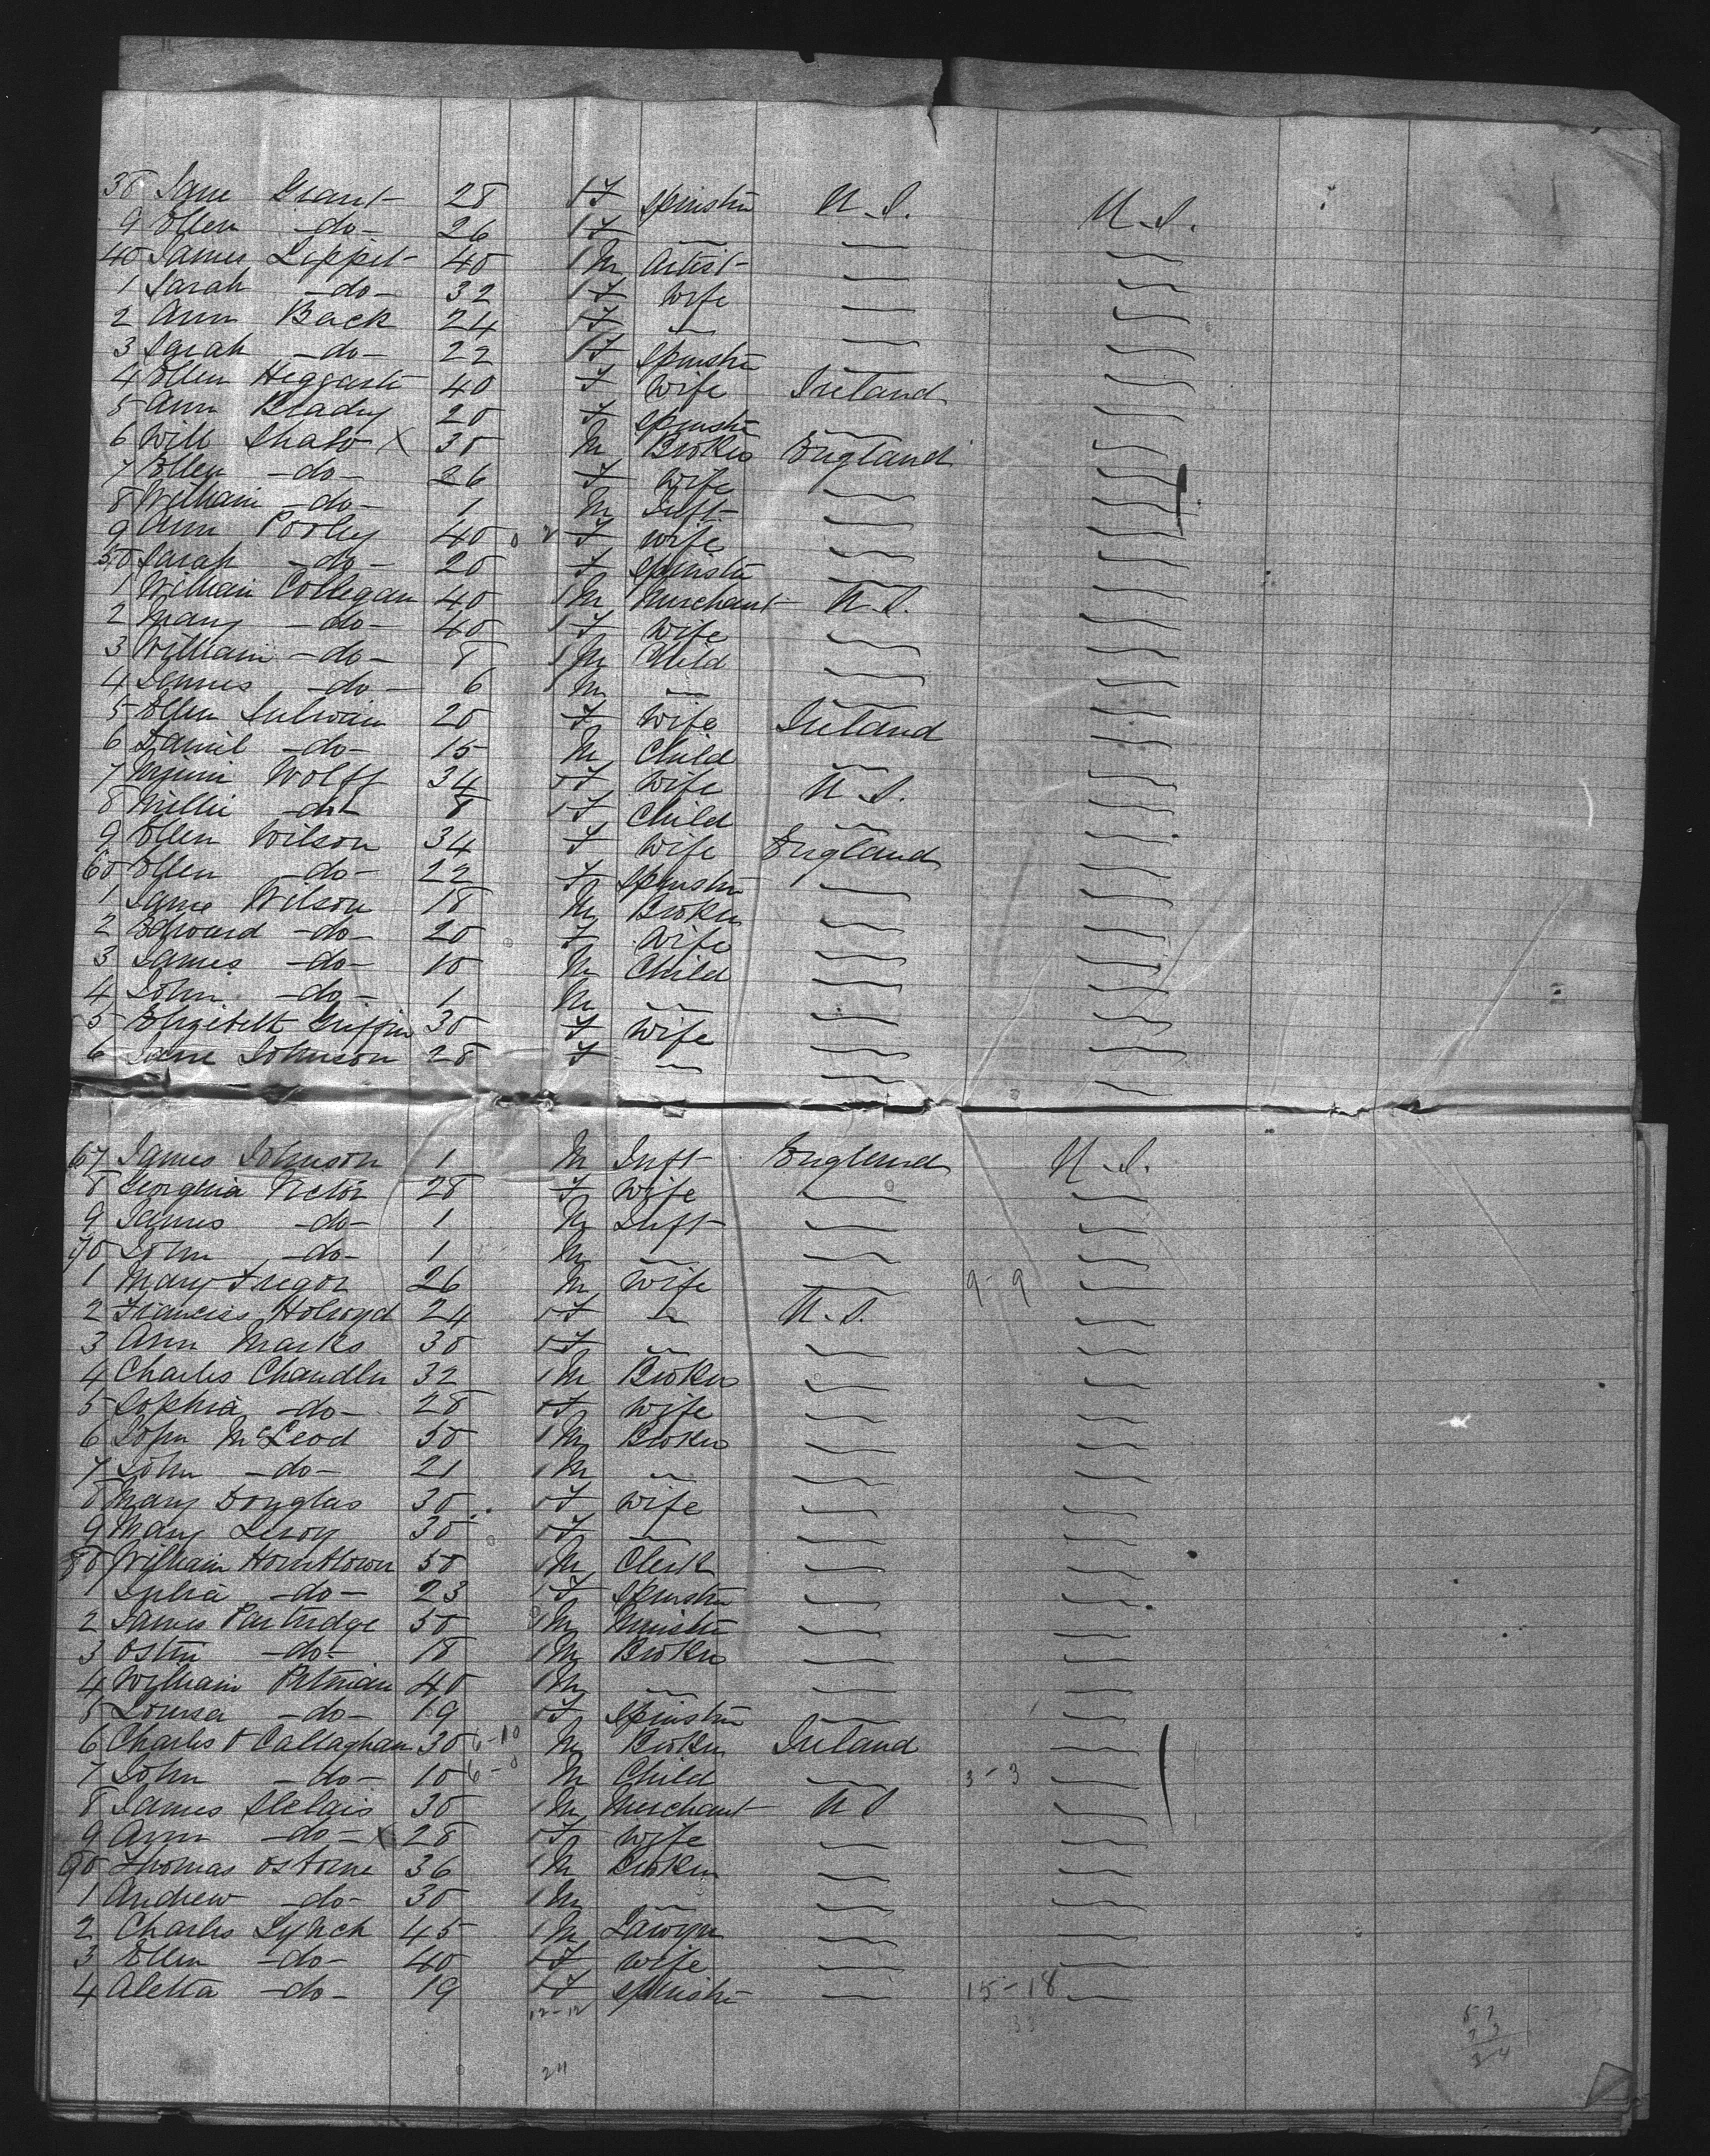 38 Jane Grant 28 1 F Spinster U.S. U.S.
9 Ellen -do- 26 1 F — — —
40 James Lippet 40 1 M Artist — —
1 Sarah -do- 32 1 F Wife — —
2 Ann Back 24 1 F — — —
3 Sarah -do- 22 1 F Spinster — —
4 Ellen Heggarty 40 F Wife Ireland —
5 Ann Brady 20 F Spinster — —
6 Will Shaw X 30 M Broker England —
7 Ellen -do- 26 F Wife — —
8 William -do- 1 M Inft — —
9 Ann Pooley 40 F Wife — —
50 Sarah -do- 20 F Spinster — —
1 William Collegan 40 1 M Merchant U.S. —
2 Mary -do- 40 1 F Wife — —
3 William -do- 8 1 M Child — —
4 James -do- 6 1 M — — —
5 Ellen Sulivain 20 F Wife Ireland —
6 Daniel -do- 15 M Child — —
7 Wolff 34 1 F Wife U.S. —
8 Millie -do- 8 1 F Child — —
9 Ellen Wilson 34 F Wife England —
60 Ellen -do- 22 F Spinster — —
1 Jame Wilson 18 M Broker — —
2 Edward -do- 20 F Wife — —
3 James -do- 10 M Child — —
4 John -do- 1 M — — —
5 Elizebeth Griffin 30 F Wife — —
6 Jane Johnson 28 F — — —
67 James Johnson 1 M Inft England U.S.
8 Georgina Victor 28 F Wife — —
9 James -do- 1 M Inft — —
70 John -do- 1 M — — —
1 Mary Fregor 26 M Wife — 9-9 —
2 Franciss Holroyd 24 1 F — U.S. —
3 Ann Marks 30 1 F — — —
4 Charles Chandler 32 1 M Broker — —
5 Sophia -do- 28 1 F Wife — —
6 John McLeod 50 1 M Broker — —
7 John -do- 21 1 M — — —
8 Mary Douglas 30 1 F Wife — —
9 Mary Leroy 30 1 F — — —
80 William Hornblower 50 1 M Clerk — —
1 Julia -do- 23 1 F Spinster — —
2 James Partridge 50 1 M Minister — —
3 Ostin -do- 18 1 M Broker — —
4 William Putman 40 1 M — — —
5 Louisa -do- 19 1 F Spinster — —
6 Charles O Callaghan 30 6-10 M Broker Ireland —
7 John -do- 10 6-0 M Child — 3-3 —
8 James 30 1 M Merchant U S —
9 Ann -do- X 28 1 F Wife — —
90 Thomas Osborne 36 1 M Broker — —
1 Andrew -do- 30 1 M — — —
2 Charles Lynch 45 1 M Lawyer — —
3 Ellen -do- 40 1 F Wife — —
4 Aletta -do- 19 1 F Spinster — 15-18 —
12-12
33
24